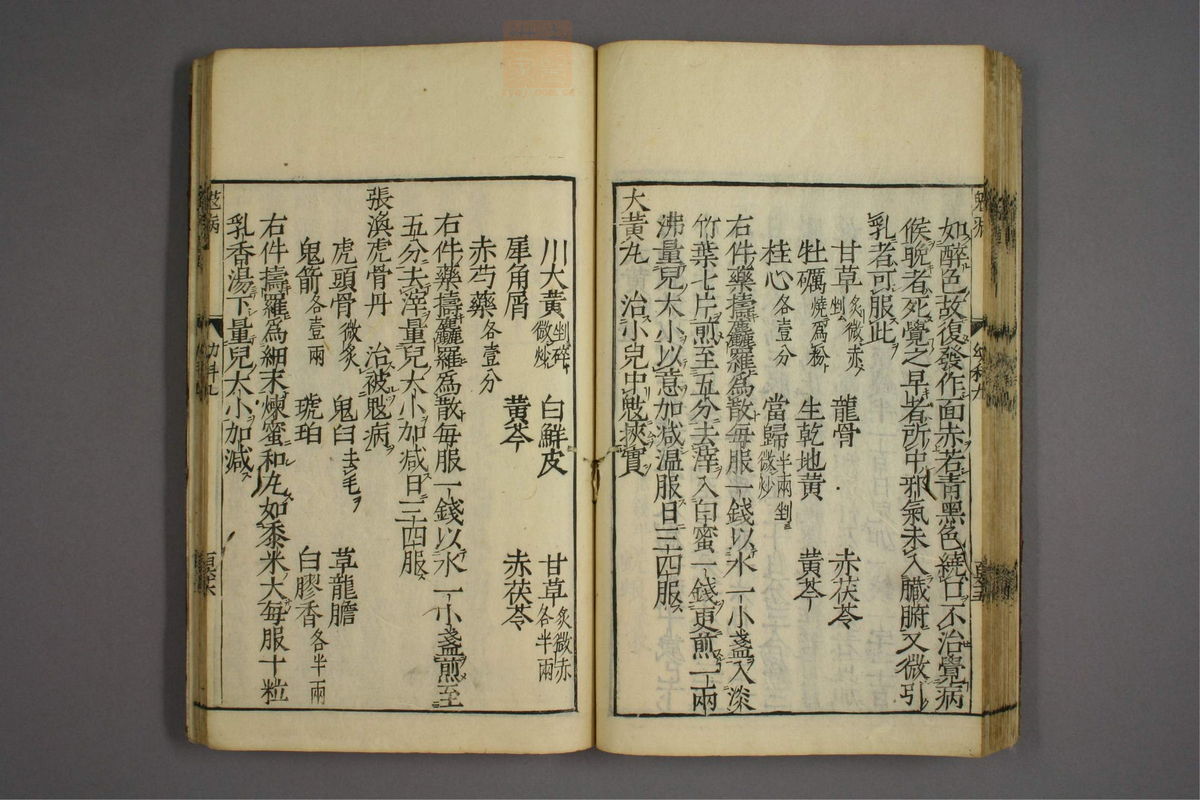 如醉色故復發作面赤若青黑色繞口不治覺病
候晩者死覺之早者所中邪氣未入臟腑又微引
乳者可服此
甘草炙微赤剉 龍骨 赤茯苓
牡礪燒爲粉 生乾地黄 黄芩
桂心各壹分 當歸半兩剉微炒
右件藥擣麤羅爲散毎服一錢以水一小盞入淡
竹葉七片煎至五分去滓入白蜜一錢更煎一兩
沸量兒大小以意加減温服日三四服
大黄丸 治小兒中鬾挾實
川大黄剉碎微炒 白鮮皮 甘草炙微赤各半兩
犀角屑 黄芩 赤茯苓
赤芍藥各壹分
右件藥擣麤羅爲散毎服一錢以水一小盞煎至
五分去滓量兒大小加減日三四服
張渙虎骨丹 治被鬾病
虎頭骨微炙 鬼臼去毛 草龍膽
鬼箭各壹兩 琥珀 白膠香各半兩
右件擣羅爲細末煉蜜和丸如黍米大毎服十粒
乳香湯下量兒大小加減
鬾病